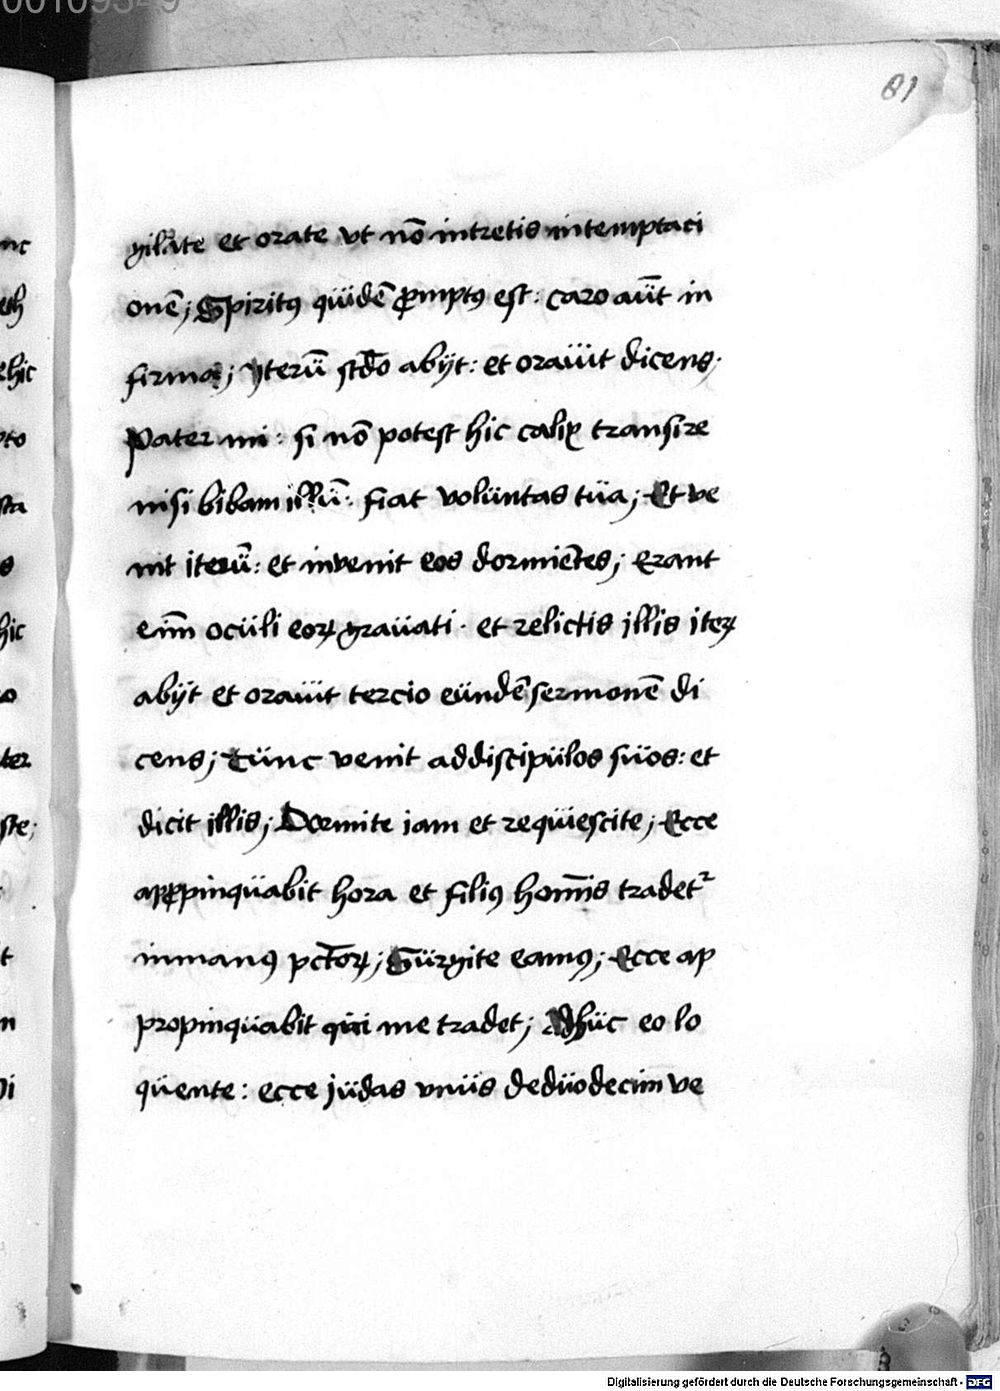 00109349
81
gilate et orate vt nō intretis intemptaci
onē; Spiritꝯ qüidē ꝓmptꝯ est: caro aūt in
firma; yterū scd̄o abÿt: et oraüit dicens·
Pater mi: si nō potest hic calix transire
nisi bibam illū: fiat volüntas tüa; Et ve
nit iterū: et invenit eos dormiētes; Erant
eni̅m ocüli eoꝝ graüati· et relictis illis iteꝝ
abÿt et oraüit tercio eündē sermonē di
cens; Tünc venit addiscipülos süos: et
dicit illis; Dormite iam et reqüiescite; Ecce
apꝓpinqüabit hora et filiꝯ homīs tradetᷣ
inmanꝯ pcto̅ꝝ; Sürgite eamꝯ; Ecce ap
propinqüabit qüi me tradet; Adhüc eo lo
qüente: ecce jüdas vnüs dedüodecim ve
nc
eth
ehic
pto
sta
s
hic
o
ter
ste;
t
n
Di
Digitalisierung gefördert durch die Deutsche Forschungsgemeinschaft - DFG